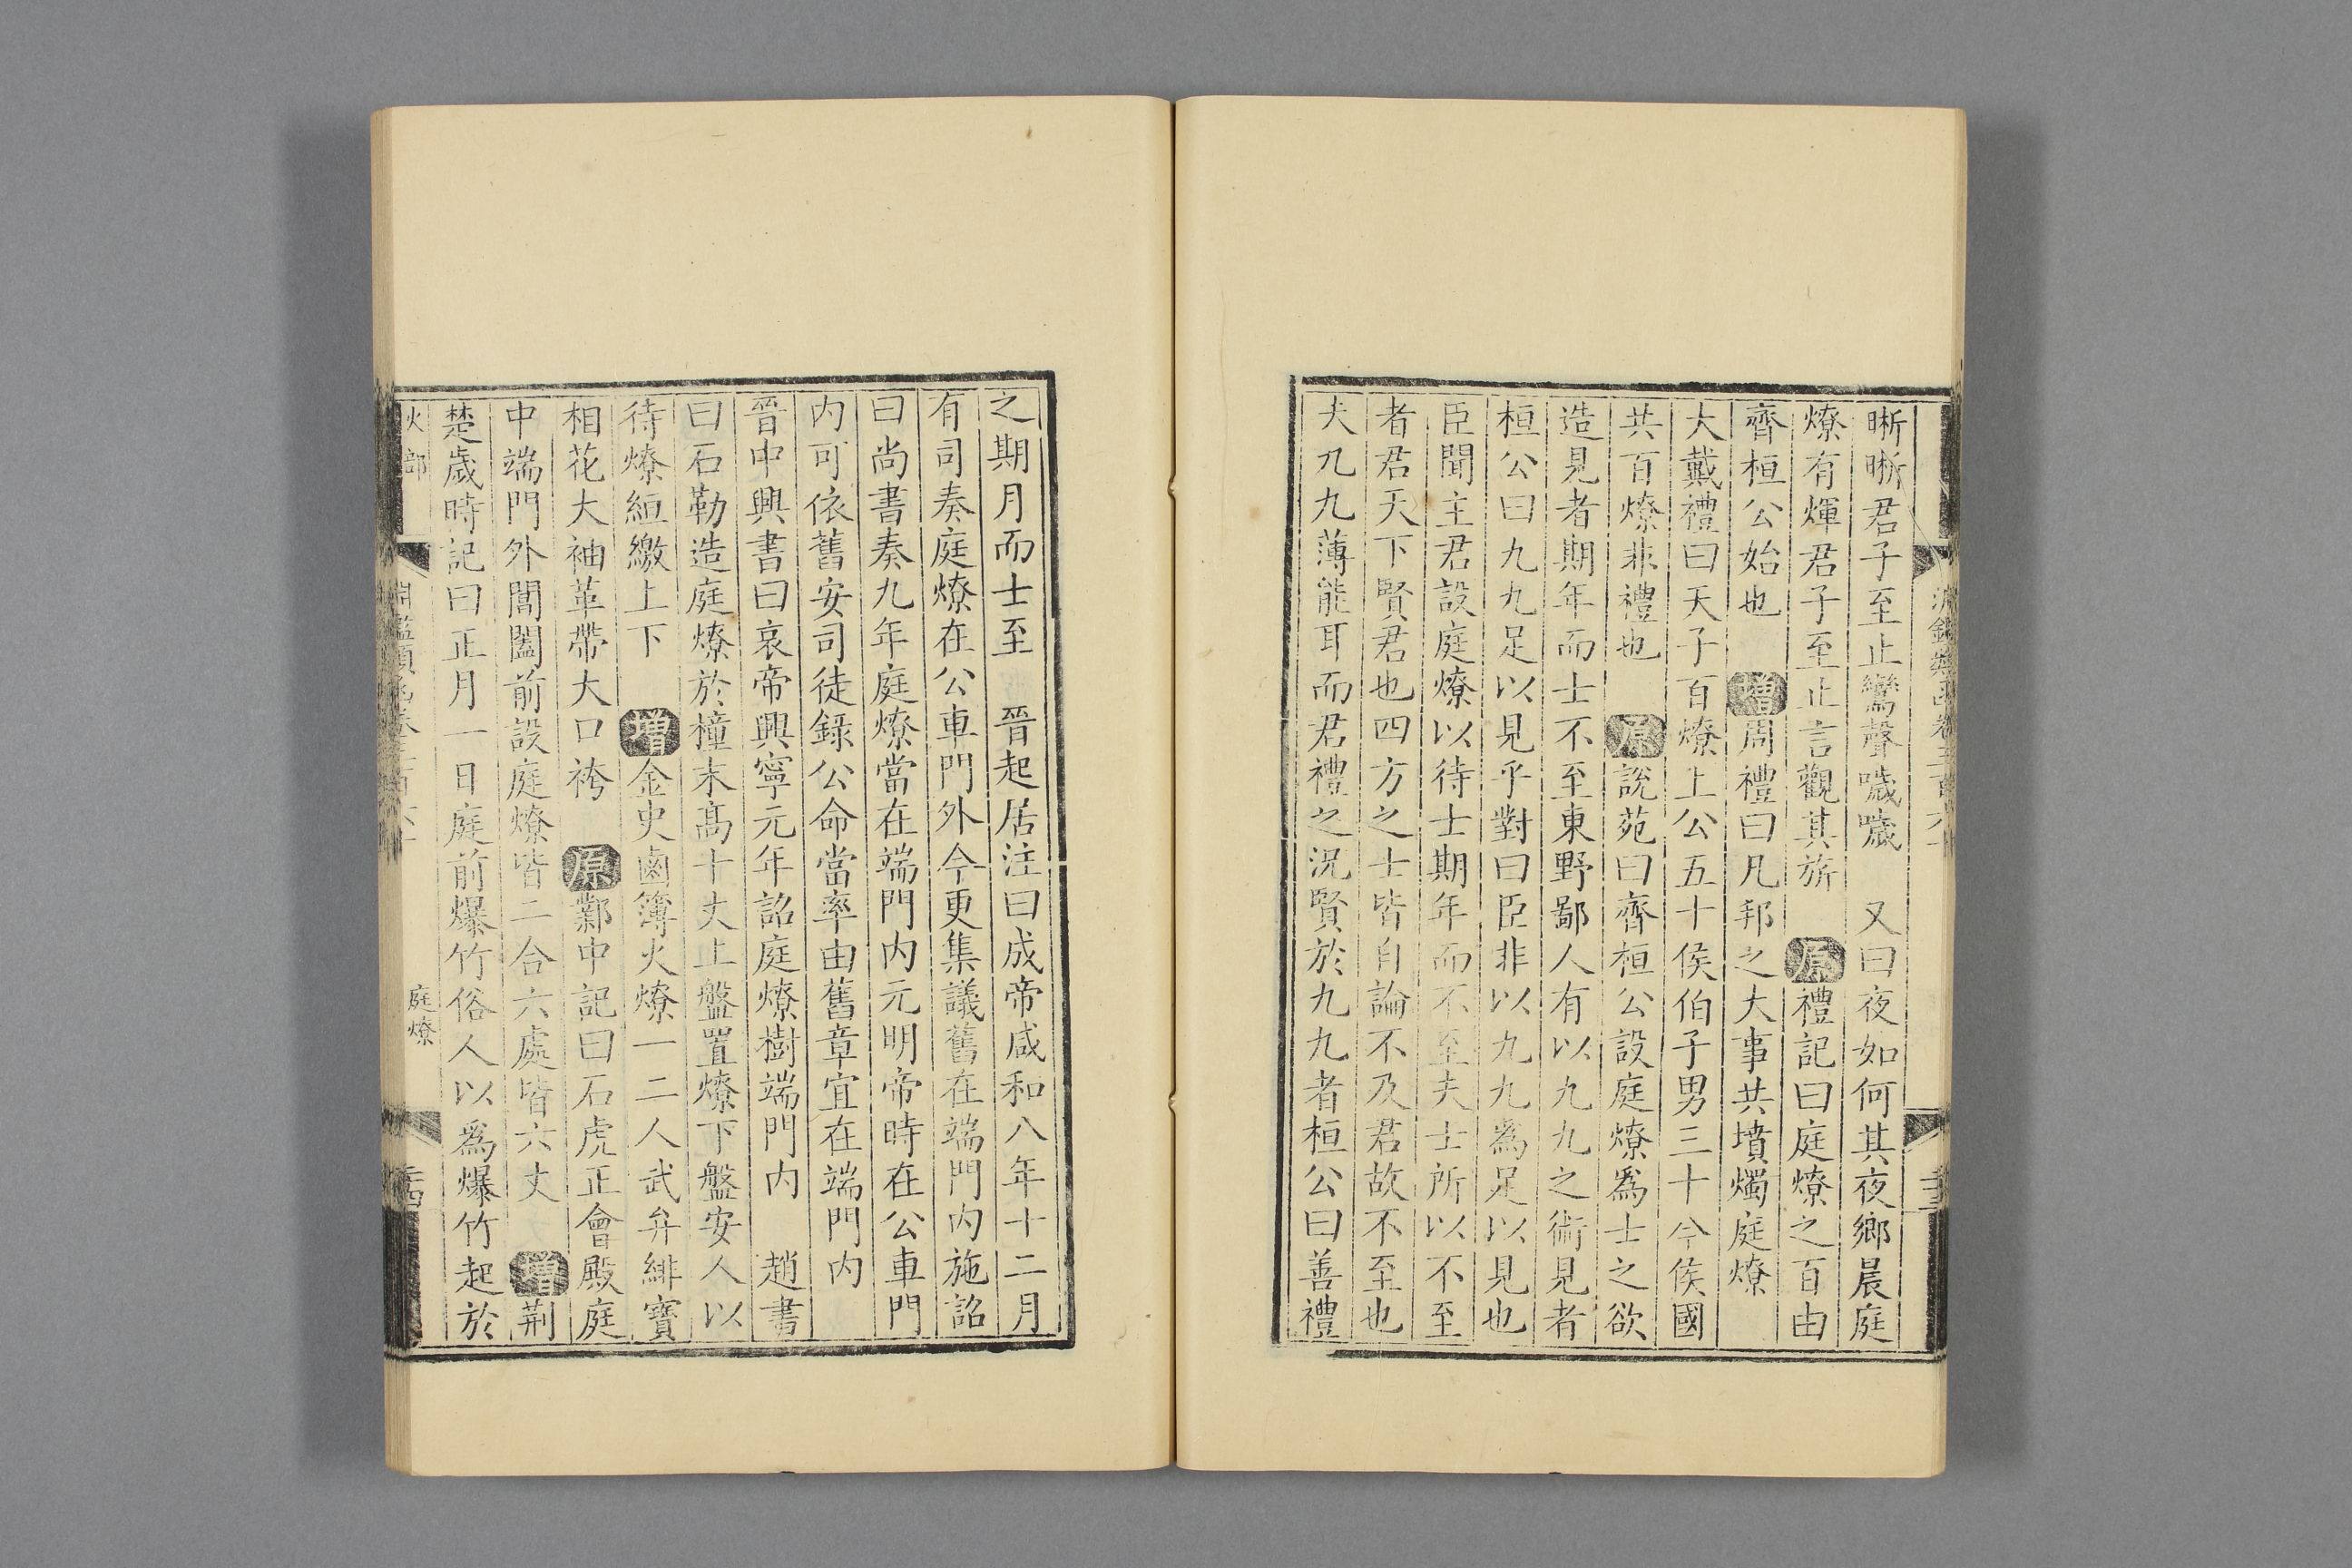 晣晣君子至止鸞聲噦噦　又曰夜如何其夜鄉晨庭
燎有煇君子至止言觀其旂　原禮記曰庭燎之百由
齊桓公始也　增周禮曰凡邦之大事共墳燭庭燎
大戴禮曰天子百燎上公五十侯伯子男三十今侯國
共百燎非禮也　原說苑曰齊桓公設庭燎爲士之欲
造見者期年而士不至東野鄙人有以九九之術見者
桓公曰九九足以見乎對曰臣非以九九爲足以見也
臣聞主君設庭燎以待士期年而不至夫士所以不至
者君天下賢君也四方之士皆自論不及君故不至也
夫九九薄能耳而君禮之况賢於九九者桓公曰善禮
之期月而士至　晉起居注曰成帝咸和八年十二月
有司奏庭燎在公車門外今更集議舊在端門內施詔
曰尚書奏九年庭燎當在端門內元明帝時在公車門
內可依舊安司徒錄公命當率由舊章宜在端門內
晉中興書曰哀帝興寧元年詔庭燎樹端門內　趙書
曰石勒造庭燎於橦末高十丈止盤置燎下盤安人以
待燎絙繳上下　增金史鹵簿火燎一二人武弁緋寶
相花大袖革帶大口袴　原鄴中記曰石虎正會殿庭
中端門外閶闔前設庭燎皆二合六處皆六丈　增荆
楚歲時記曰正月一日庭前爆竹俗人以爲爆竹起於
火部
庭燎